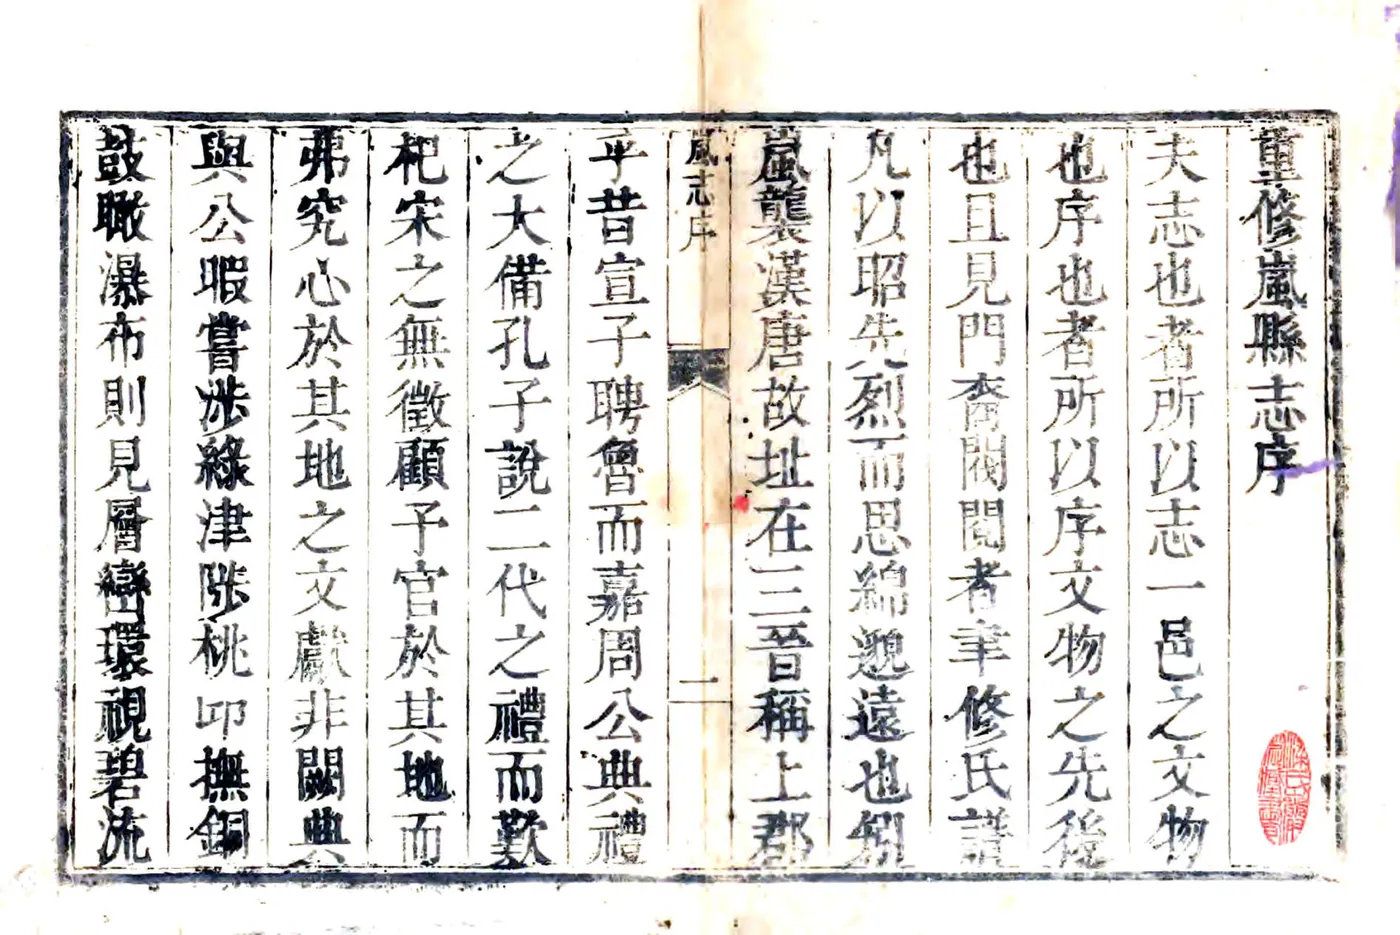 重修嵐縣志序
夫志也者所以志一邑之文物
也序也者所以序文物之先後
也且見門裔閥閱者聿修氏譜
凡以昭先烈而思綿邈遠也矧
嵐襲漢唐故址在三晉稱上郡
嵐志序
二
乎昔宣子聘魯而嘉周公典禮
之大備孔子說二代之禮而歎
杞宋之無徵顧予官於其地而
弗究心於其地之文獻非闕典
與公暇嘗涉綠津陟桃卬撫銅
鼓瞰瀑布則見層巒環視碧流